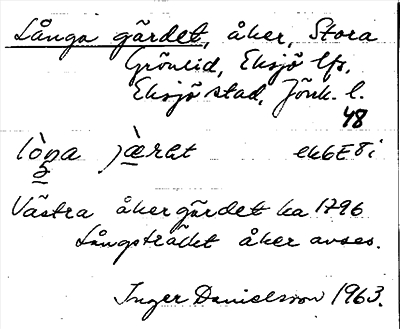 Långa gärdet, åker, Stora
Grönlid, Eksjö lfs,
Eksjö stad, Jönk. l.
48
jæ̀rət ek6E8i
Västra åkergärdet ka 1796
Långsträckt åker avses.
Inger Danielsson 1963.